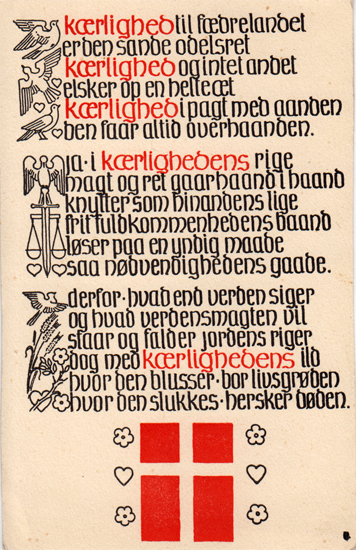 kærlighed til fædrelandet
er den sande odelsret
kærlighed og intet andet
elsker op en helteæt
kærlighed i pagt med aanden
den faar altid overhaanden.
ja · i kærlighedens rige
magt og ret gaar haand i haand
knytter som hinandens lige
frit fuldkommenhedens baand
løser paa en yndig maade
saa nødvendighedens gaade.
derfor · hvad end verden siger
og hvad verdensmagten vil
staar og falder jordens riger
dog med kærlighedens ild
hvor den blusser · bor livsgrøden
hvor den slukkes · hersker døden.